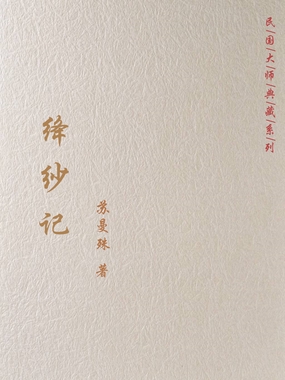 民国大师典藏系列
绛纱记
苏曼殊 著